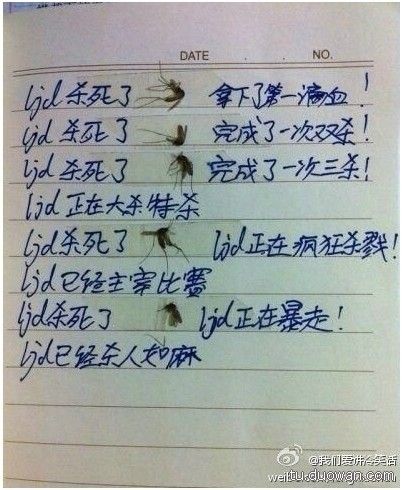 DATE . . . NO.
ljd 杀死了 拿下了第一滴血!
ljd 杀死了 完成了一次双杀!
ljd 杀死了 完成了一次三杀!
ljd 正在大杀特杀
ljd 杀死了 ljd 正在疯狂杀戮!
ljd 已经主宰比赛
ljd 杀死了 ljd 正在暴走!
ljd 已经杀人如麻
@我们爱讲冷笑话
tu.duowan.com